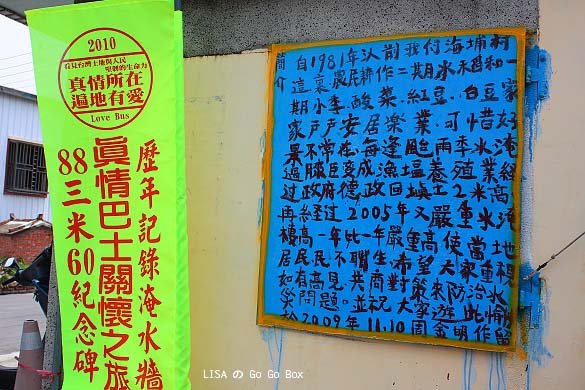 2010
看見台灣土地與人民
堅韌的生命力
真情所在
遍地有愛
Love Bus
歷年記錄淹水牆
眞情巴士關懷之旅
88三米60紀念碑
簡介
自1981年以前我們海埔村
這裏農民耕作二期水稻和一
期小麥.酸菜.紅豆.白豆家
家戶戶安居樂業.可惜好
果不常在.每逢颱雨季水淹
過膝臣変成漁塭養殖業經
過政府德政回填土2米高
再經过.2005年又嚴重水淹
樓高一年比一年嚴重高使當地
居民民不聊生.希望大家重視
如有高見.共商対策來防治水
災問題。並祝大家遊此愉
於2009年11.10周金明作留
LISA の Go Go Box